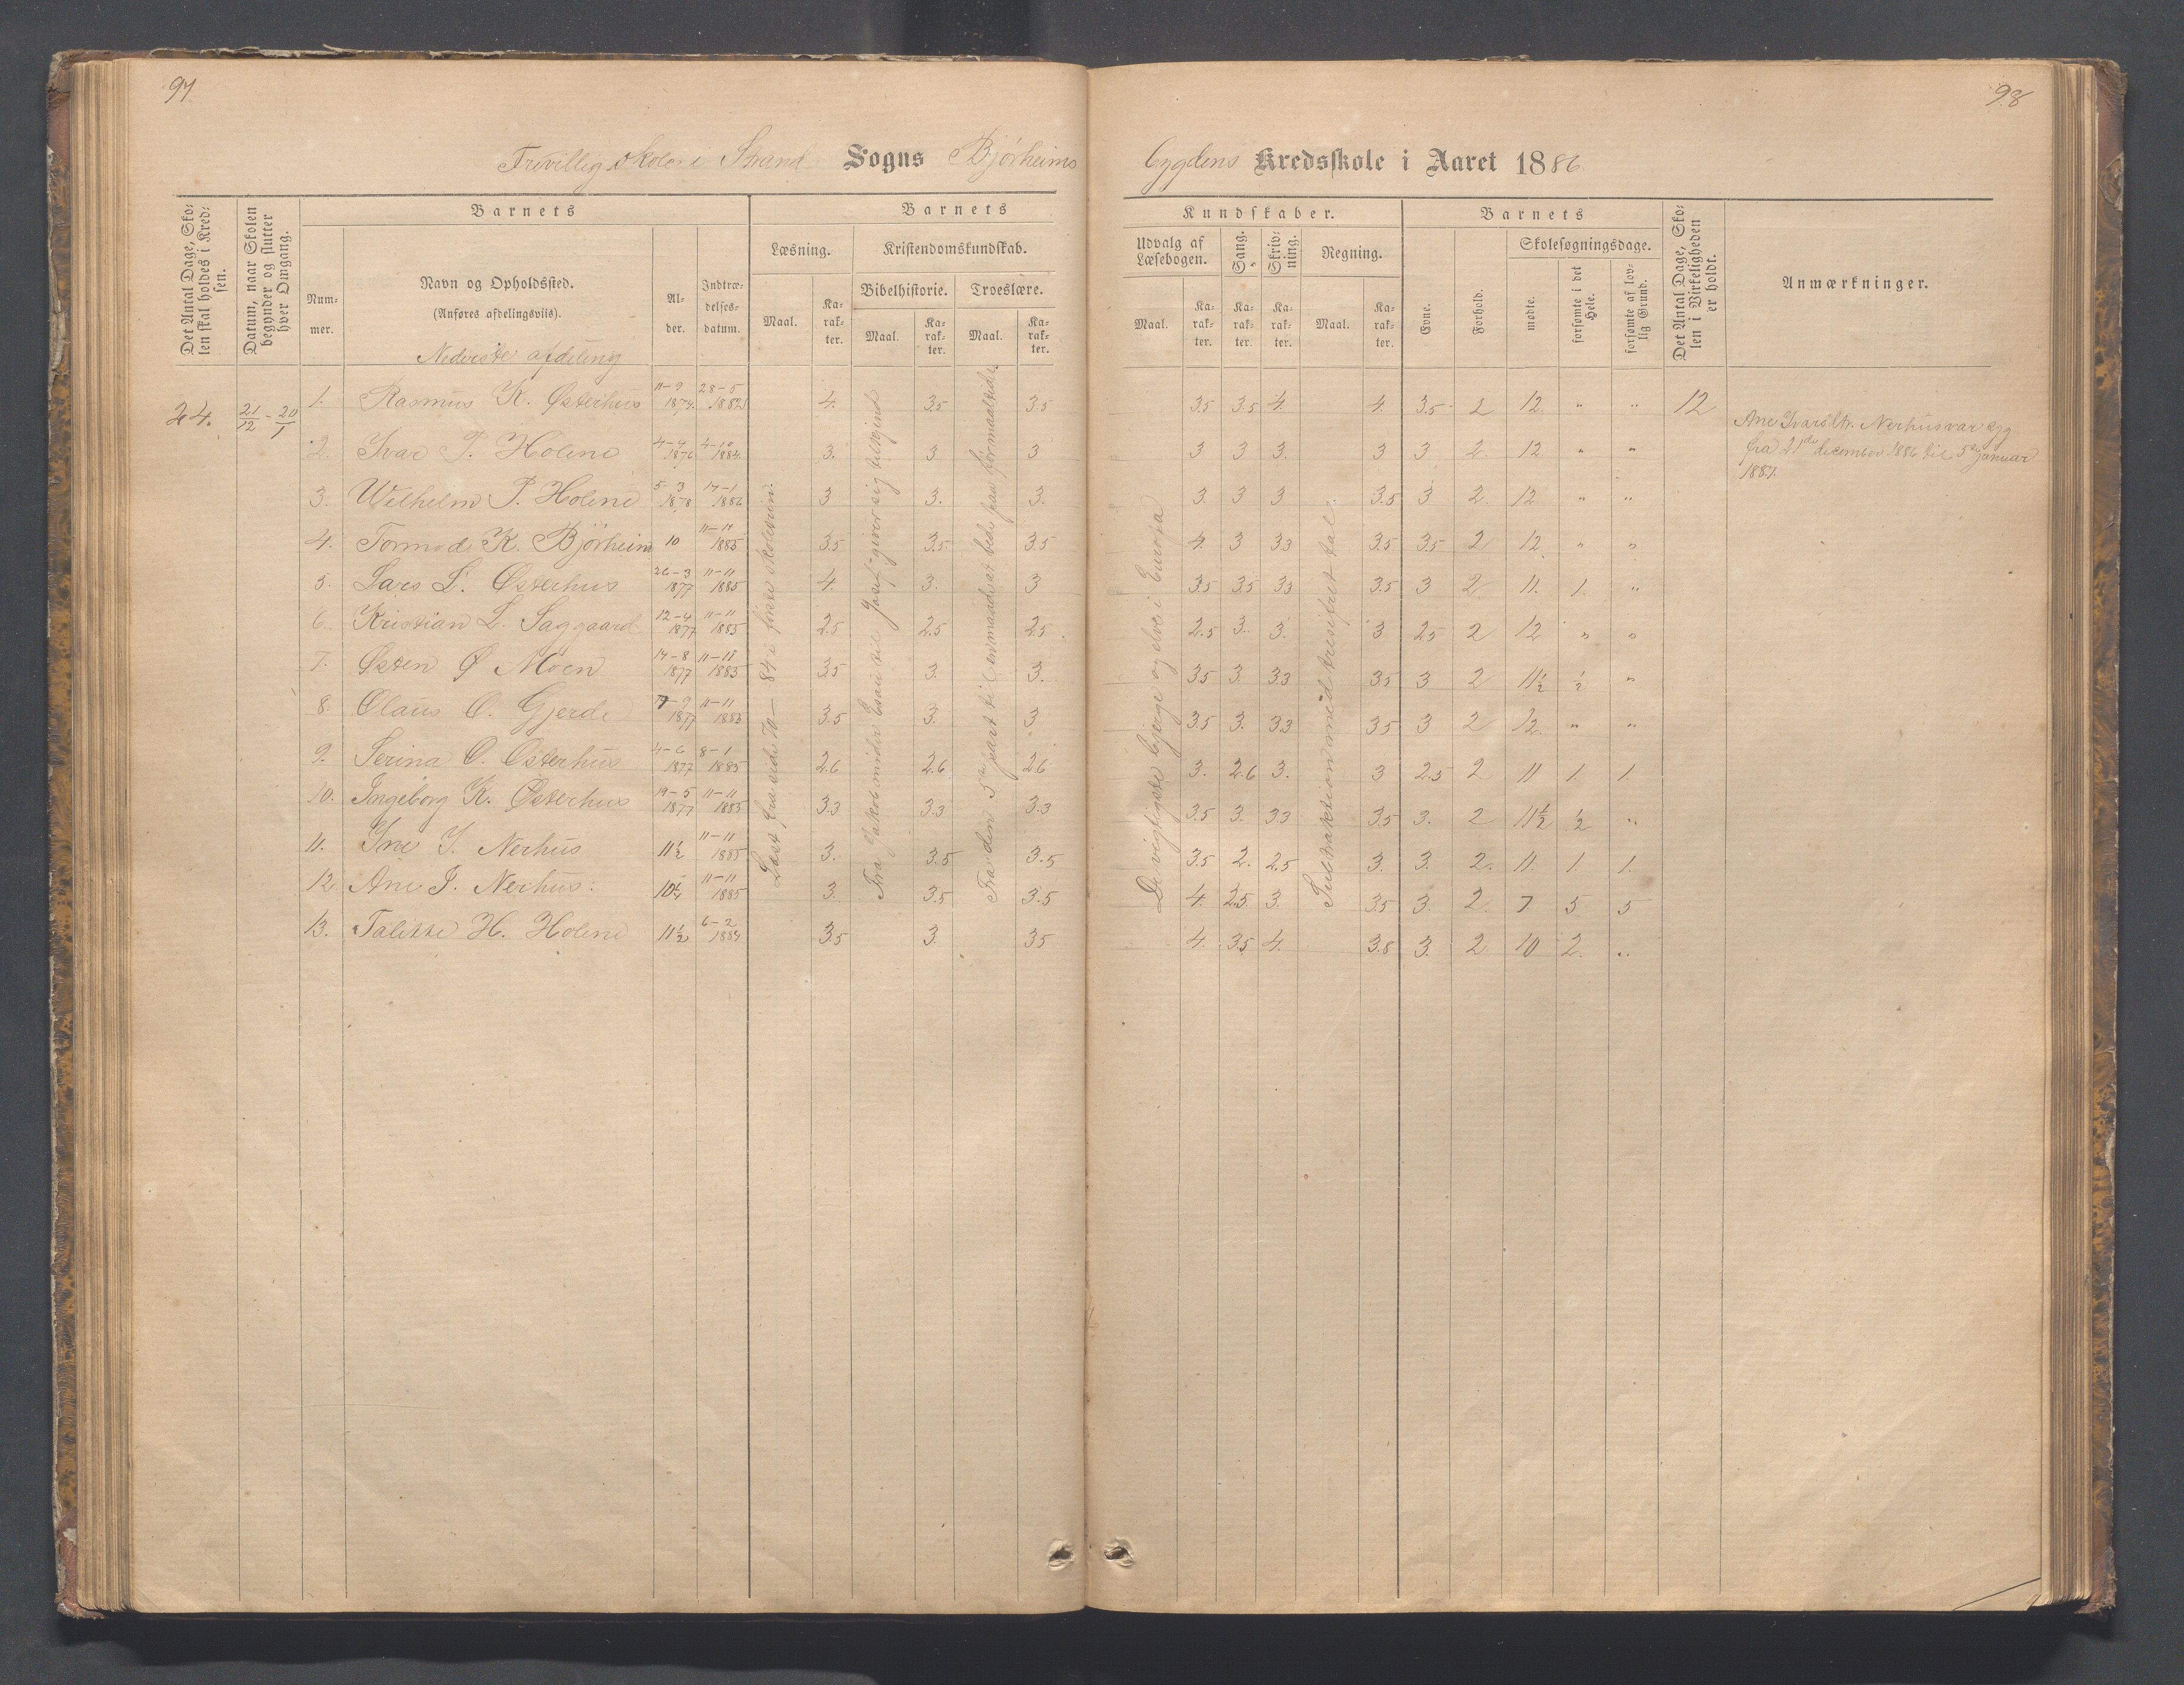 97
98
Frivillig skole i Strand Sogns Bjørheims
bygdens Kredsskole i Aaret 1886.
Det Antal Dage, Sko-
len skal holdes i Kred-
sen.
Datum, naar Skolen
begynder og slutter
hver Omgang.
Barnets
Num-
mer.
Navn og Opholdssted.
(Anføres afdelingsviis).
Nederste afdeling
Al-
der.
Indtræ-
delses-
datum.
Barnets
Læsning.
Maal.
Ka-
rak-
ter.
Kristendomskundskab.
Bibelhistorie.
Maal.
Ka-
rak-
ter.
Troeslære.
Maal.
Ka-
rak-
ter.
Kundskaber.
Udvalg af
Læsebogen.
Maal.
Ka-
rak-
ter.
Sang.
Ka-
rak-
ter.
Skriv-
ning.
Ka-
rak-
ter.
Regning.
Maal.
Ka-
rak-
ter.
Barnets
Evne.
Forhold.
Skolesøgningsdage.
mødte.
forsømte i det
Hele.
forsømte af lov-
lig Grund.
Det Antal Dage, Sko-
len i Virkeligheden
er holdt.
Anmærkninger.
24. 21/12 - 20/1
1. Rasmus K. Østerhus 11-9 1874. 28-5 1882 4. 3.5 3.5 3.5 3.5 4. 4. 3.5 2 12. " " 12
2. Ivar P. Holene 4-4 1876 4-10 1884. 3. 3 3 3 3 3. 3 3 2. 12 " "
3. Wilhelm P. Holene 5-3 1878 17-1 1886 3 3. 3. 3. 3 3 3.5 3 2 12 " "
4. Tormod K. Bjørheim 10 11-11 1885 3.5 3.5 3.5 4. 3 3.3 3.5 3.5 2 12. " "
5. Lars L. Østerhus 26-3 1877 11-11 1885 4. 3. 3 3.5 3.5 3.3 3.5 3 2 11. 1. "
6. Kristian L. Saggaard 12-4 1877 11-11 1885 2.5 2.5 2.5 2.5 3. 3. 3 2.5 2 12 " "
7. Østen Ø Moen 14-8 1877 11-11 1885 3.5 3. 3. 3.5 3. 3.3 3.5 3 2 11½ ½ "
8. Olaus O. Gjerde 7-9 1877 11-11 1885 3.5 3. 3 3.5 3. 3.3 3.5 3 2 12. " "
9. Serina O. Østerhus 4-6 1877 8-1 1885 2.6 2.6 2.6 3. 2.6 3. 3 2.5 2 11 1. 1.
10. Ingeborg K. Østerhus 19-5 1877 11-11 1885 3.3 3.3 3.3 3.5 3. 3.3 3.5 3. 2 11½ ½ "
11. Ine I. Nerhus 11½ 11-11 1885 3. 3.5 3.5 3.5 2. 2.5 3. 3. 2. 11. 1. 1.
12. Ane I. Nerhus. 10¼ 11-11 1885 3. 3.5 3.5 4. 2.5 3. 3.5 3. 2. 7 5 5
13. Talette H. Holene 11½ 6-2 1884 3.5 3. 3.5 4. 3.5 4. 3.8 3. 2 10 2. "
Læst fra side 70 - 84 i første skoletrin.
Fra Jakob under Esau til "Josef giver sig tilkjend
Fra den 5te part til
De vigtigste bjerge og elve i Europa
Subtraktion med tresifret tal.
Ane Ivarsdtr. Nerhus var syg
fra 21de december 1886 til 5te januar
1887.